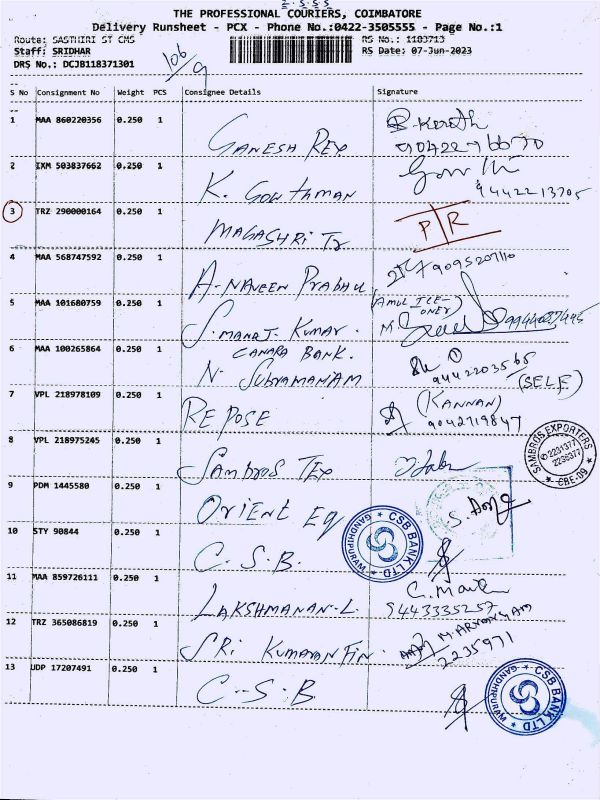 THE PROFESSIONAL COURIERS, COIMBATORE
Delivery Runsheet - PCX - Phone No.:0422-3505555 - Page No.:1
Route: SASTHIRI ST CMS RS No.: 1183713
Staff: SRIDHAR RS Date: 07-Jun-2023
DRS No.: DCJB118371301
106/9
S No Consignment No Weight PCS Consignee Details Signature
1 MAA 860220356 0.250 1 GANESH REX
2 IXM 503837662 0.250 1 K. GOWTHAMAN
9442213705
3 TRZ 290000164 0.250 1 MAGASHRI Tr P/R
4 MAA 568747592 0.250 1 A-NAVEEN PRabhU 9095207110
5 MAA 101680759 0.250 1 S. MANOJ. KUMAR.
6 MAA 100265864 0.250 1 CANARA BANK.
N. SUBRAMANIAM 9442203565
(SELF)
7 VPL 218978109 0.250 1 REPOSE (KANNAN)
9042719847
8 VPL 218975245 0.250 1 SAMBROS TEX
SAMBROS EXPORTERS
2231377
2236377
CBE-09
9 PDM 1445580 0.250 1 ORIENT Eq
10 STY 90844 0.250 1 C.S.B.
CSB BANK LTD
GANDHIPURAM
11 MAA 859726111 0.250 1 LAKSHMANAN-L.
9443335257
12 TRZ 365086819 0.250 1 SRI KUMARAN FIN.
2235971
13 UDP 17207491 0.250 1 C-S-B
CSB BANK LTD
GANDHIPURAM